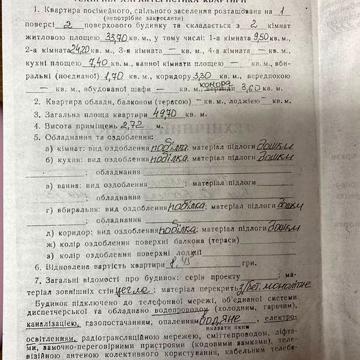 ТЕХНІЧНА ХАРАКТЕРИСТИКА КВАРТИРИ
1. Квартира посімейного, спільного заселення розташована на 1
(непотрібне закреслити)
поверсі 2 поверхового будинку та складається з 2 кімнат
житловою площею 33,70 кв. м., у тому числі: 1-а кімната 9,50 кв. м.,
2-а кімната 24,20 кв. м., 3-я кімната — кв. м., 4-а кімната — кв. м.,
кухні площею 7,40 кв. м., ванної кімнати площею — кв. м., вби-
ральні (поєднаної) 1,70 кв. м., коридору 3,30 кв. м., передпокою
— кв. м., вбудованої шафи — кв. м., комора 3,60 кв. м.
2. Квартира обладн. балконом (терасою) — кв. м., лоджією — кв. м.
3. Загальна площа квартири 49,70 кв. м.
4. Висота приміщень 2,72 м.
5. Обладнання та оздоблення:
а) кімнат: вид оздоблення побілка; матеріал підлоги дошки
; обладнання
б) кухня: вид оздоблення побілка; матеріал підлоги дошки
; обладнання
в) ванна: вид оздоблення ; матеріал підлоги
; обладнання
г) вбиральня: вид оздоблення побілка; матеріал підлоги дошки
; обладнання
д) коридор: вид оздоблення побілка; матеріал підлоги дошки
ж) колір оздоблення поверхні балкона (тераси)
з) колір оздоблення поверхні лоджії
6. Відновлена вартість квартири грн.
7. Загальні відомості про будинок: серія проекту ; ма-
теріал зовнішніх стін цегла; матеріал перекриття з/бет. монолітне
Будинок підключено до телефонної мережі, об'єднаної системи
диспетчерської та обладнано водопроводом (холодним, гарячим),
каналізацією, газопостачанням, опаленням водяне, електро-
вказати яким
освітленням, радіотрансляційною мережею, сміттєпроводом, ліфта-
ми, замочно-переговорними пристроями (кодовими замками), теле-
візійною антеною колективного користування, кабельним телеба-